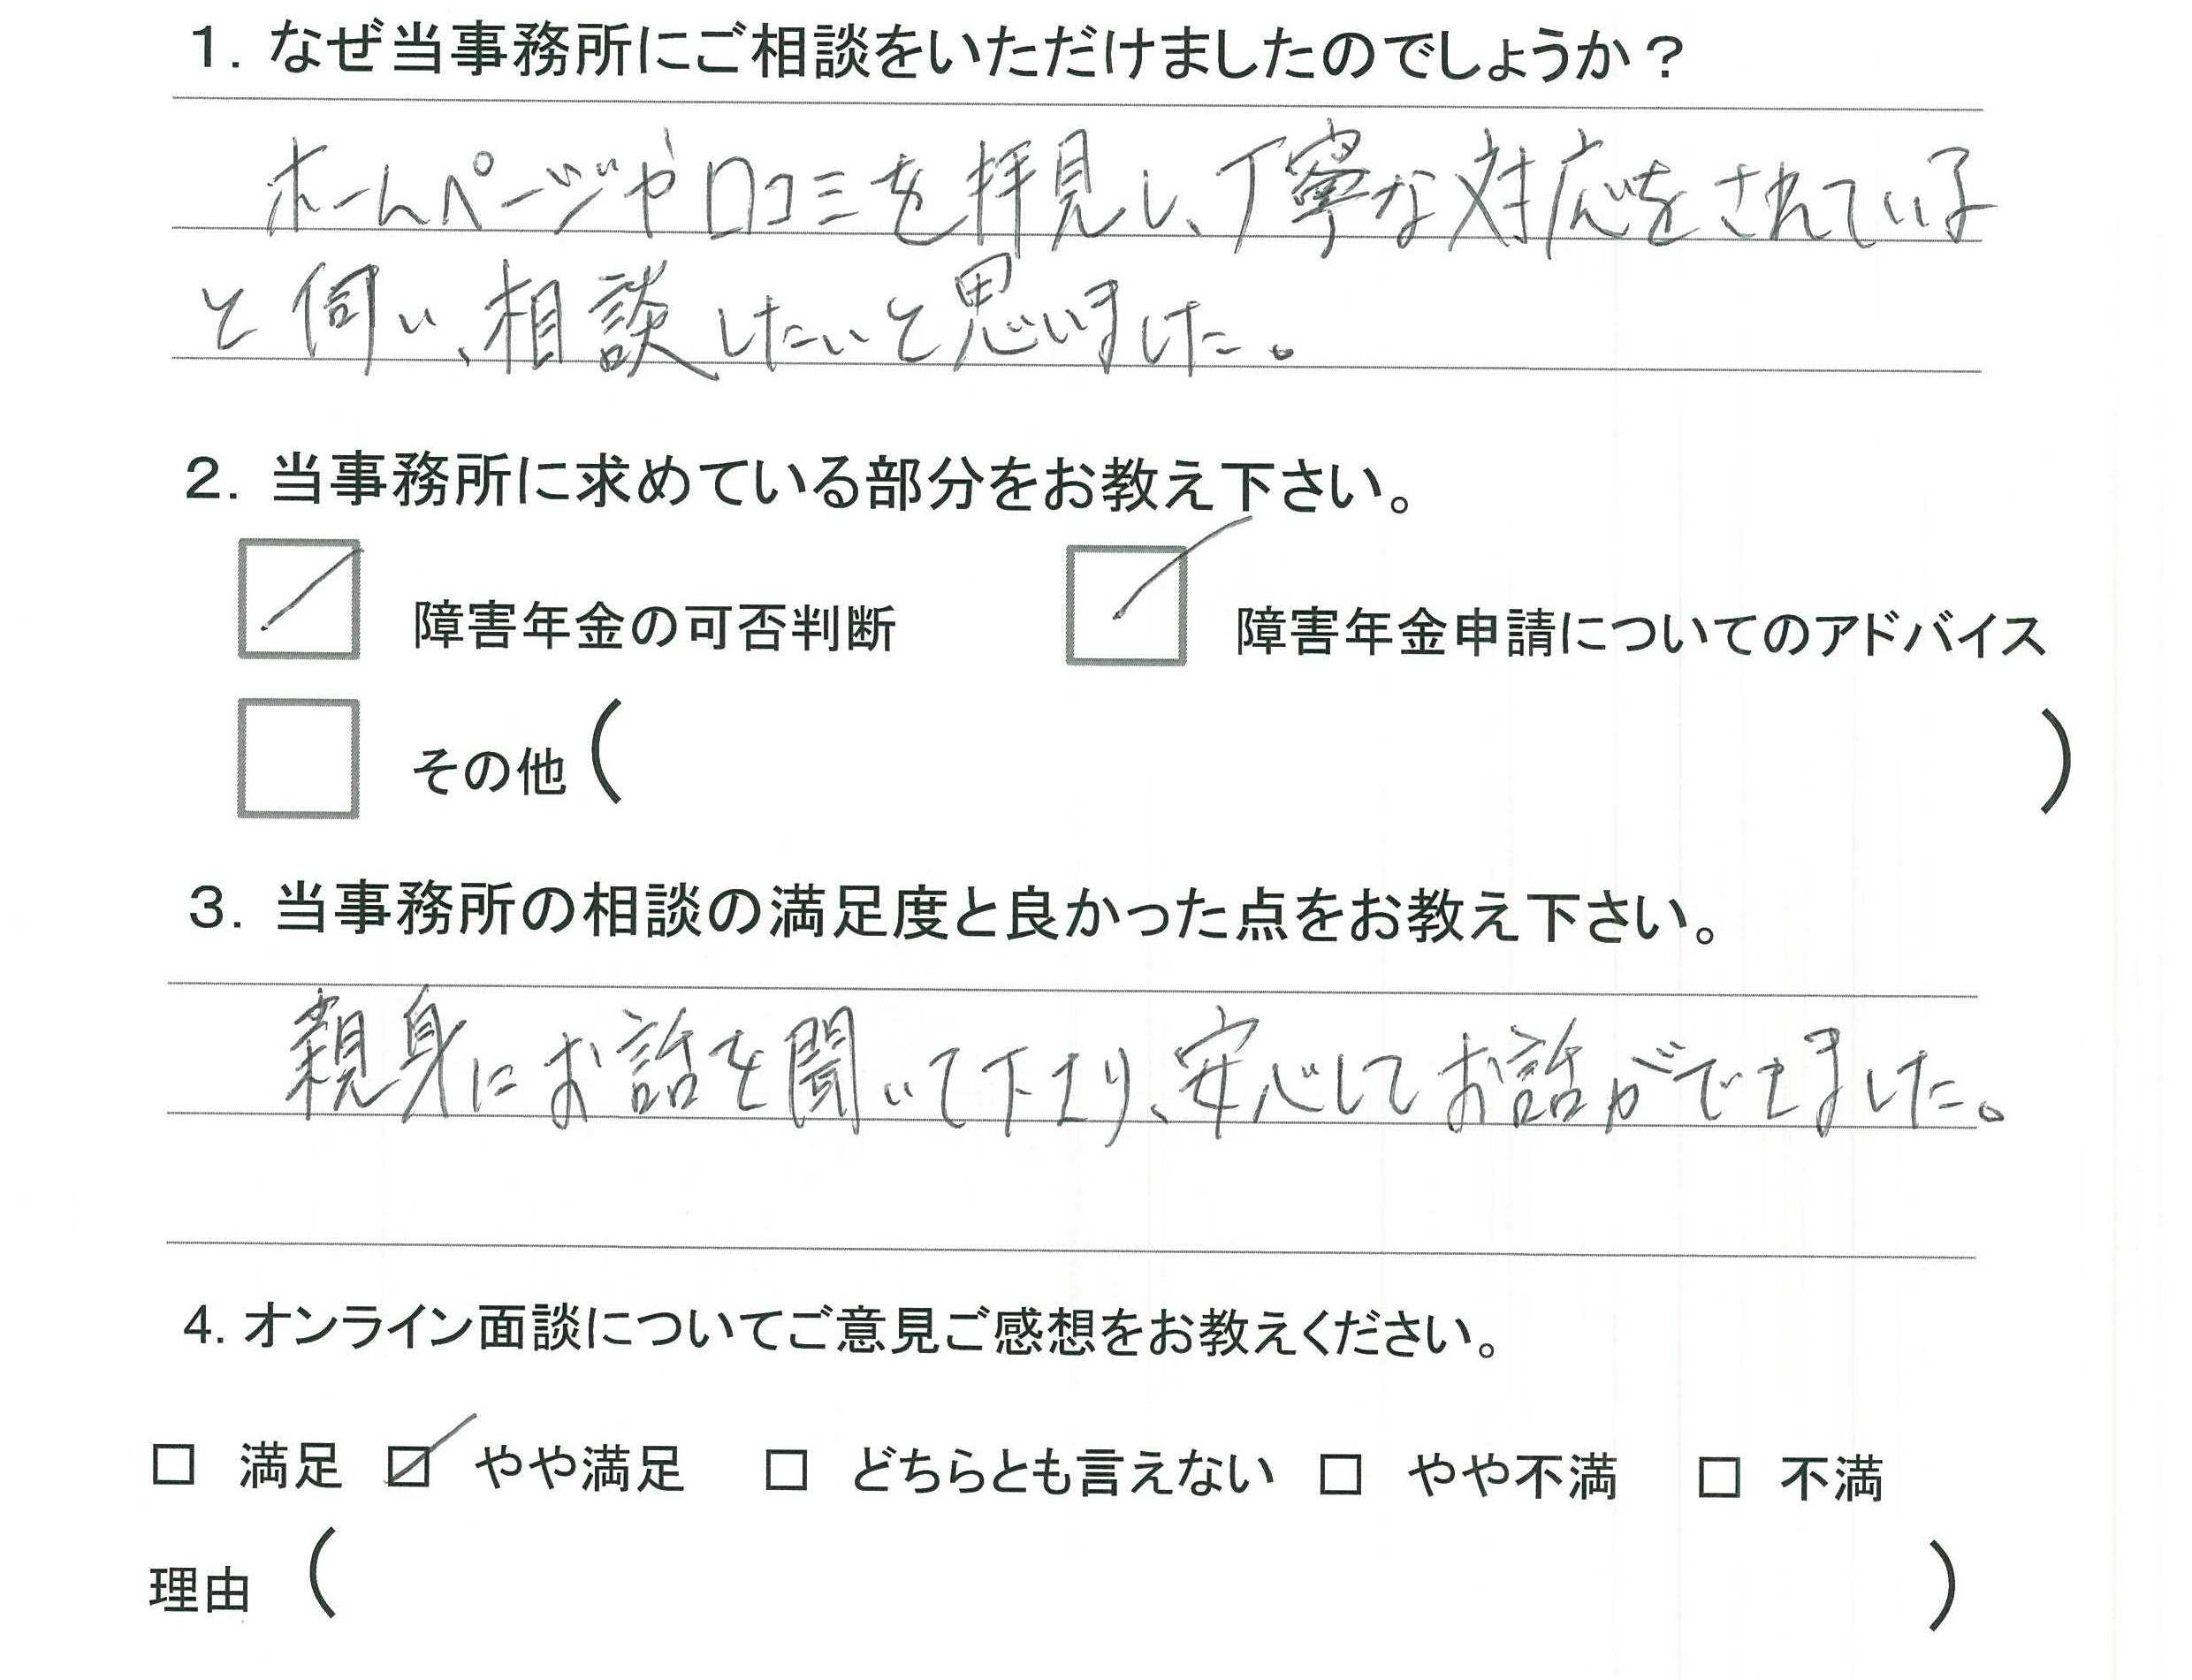 1. なぜ当事務所にご相談をいただけましたのでしょうか？
ホームページや口コミを拝見し、丁寧な対応をされている
と伺い、相談したいと思いました。
2. 当事務所に求めている部分をお教え下さい。
☑ 障害年金の可否判断 ☑ 障害年金申請についてのアドバイス
□ その他（ ）
3. 当事務所の相談の満足度と良かった点をお教え下さい。
親身にお話を聞いて下さり、安心してお話ができました。
4. オンライン面談についてご意見ご感想をお教えください。
□ 満足 ☑ やや満足 □ どちらとも言えない □ やや不満 □ 不満
理由（ ）